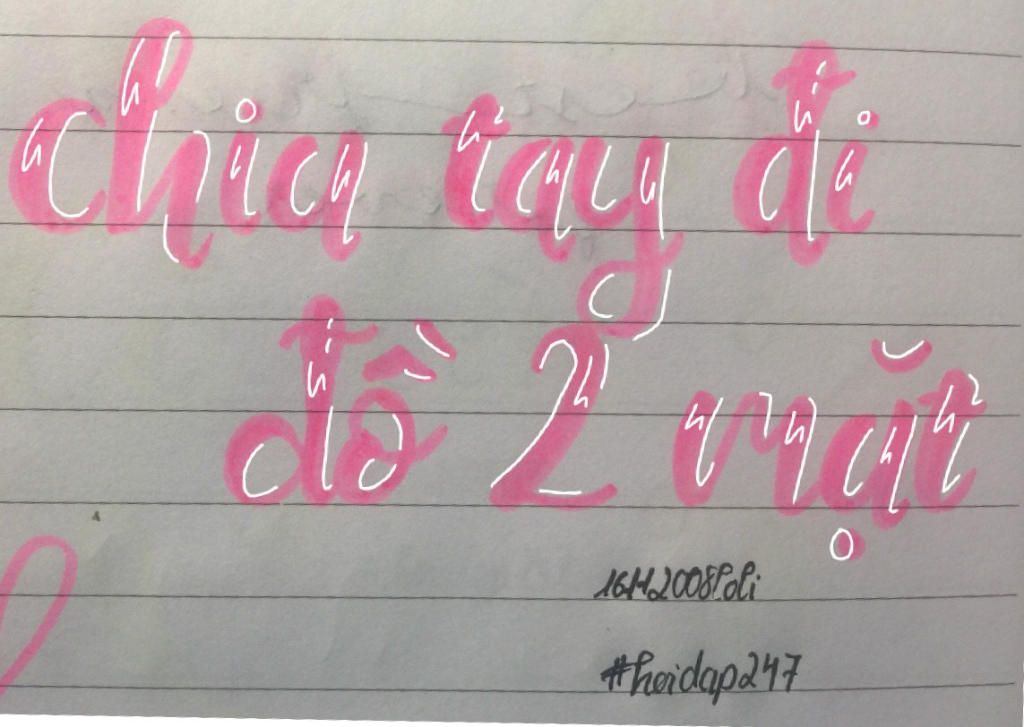 chia tay đi
đồ 2 mặt
16H2008Poli
#hoidap247